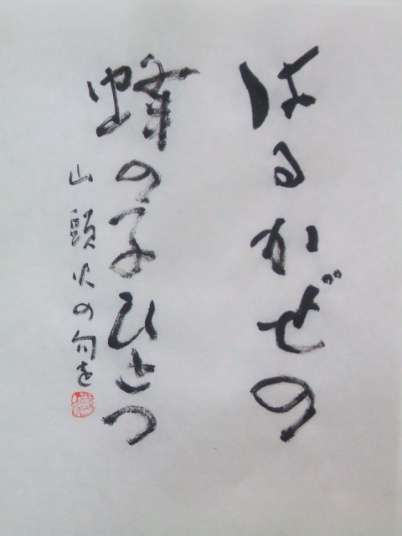 はるかぜの
蜂の子ひとつ
山頭火の句を